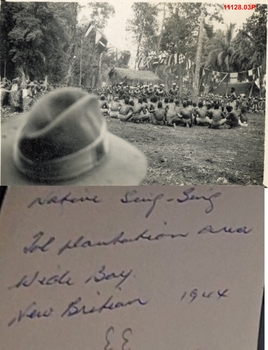 11128.03P
Native Sing-Sing
Tol plantation area
Wide Bay.
New Britian 1944
EE